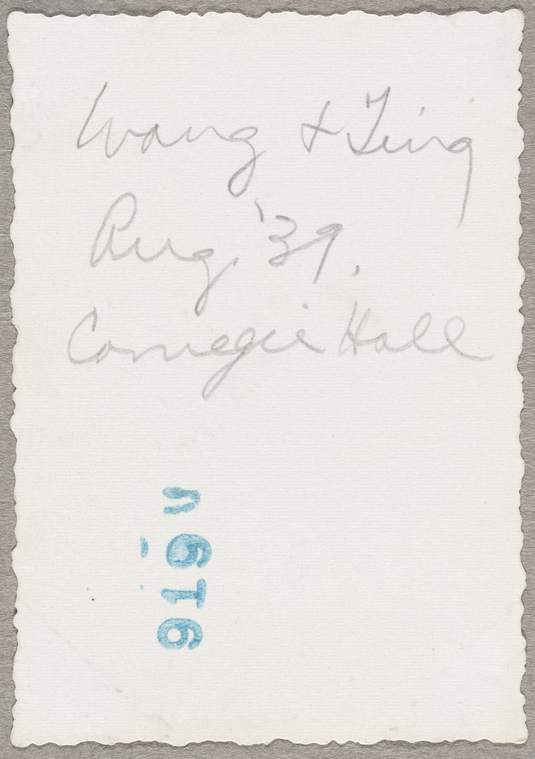 Wang & Ting
Aug. '39.
Carnegie Hall
919 V